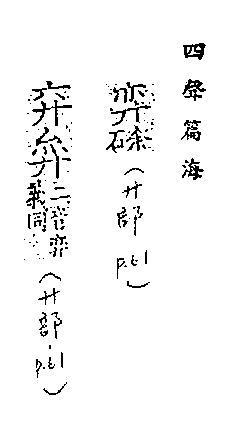 四聲篇海
弈（廾部 p.61）
二音弈義同（廾部 p.61）